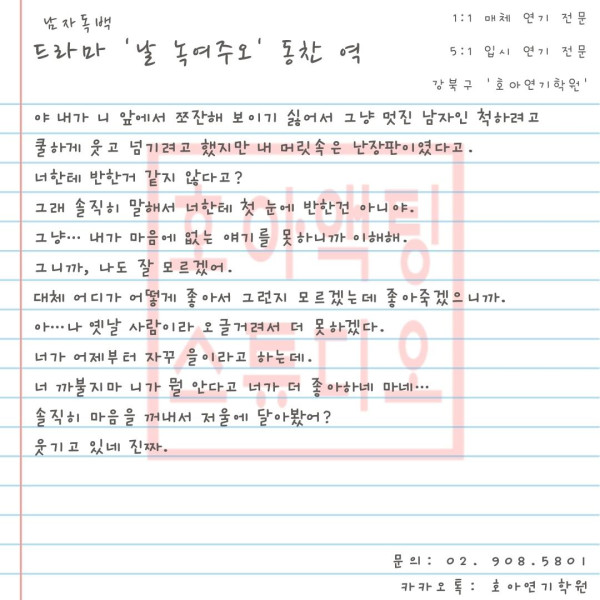 남자독백
드라마 '날 녹여주오' 동찬 역
1:1 매체 연기 전문
5:1 입시 연기 전문
강북구 '호아연기학원'
야 내가 니 앞에서 쪼잔해 보이기 싫어서 그냥 멋진 남자인 척하려고
쿨하게 웃고 넘기려고 했지만 내 머릿속은 난장판이였다고.
너한테 반한거 같지 않다고?
그래 솔직히 말해서 너한테 첫 눈에 반한건 아니야.
그냥… 내가 마음에 없는 얘기를 못하니까 이해해.
그니까, 나도 잘 모르겠어.
대체 어디가 어떻게 좋아서 그런지 모르겠는데 좋아죽겠으니까.
아…나 옛날 사람이라 오글거려서 더 못하겠다.
너가 어제부터 자꾸 을이라고 하는데.
너 까불지마 니가 뭘 안다고 너가 더 좋아하네 마네…
솔직히 마음을 꺼내서 저울에 달아봤어?
웃기고 있네 진짜.
호아액팅
스튜디오
문의: 02. 908.5801
카카오톡: 호아연기학원